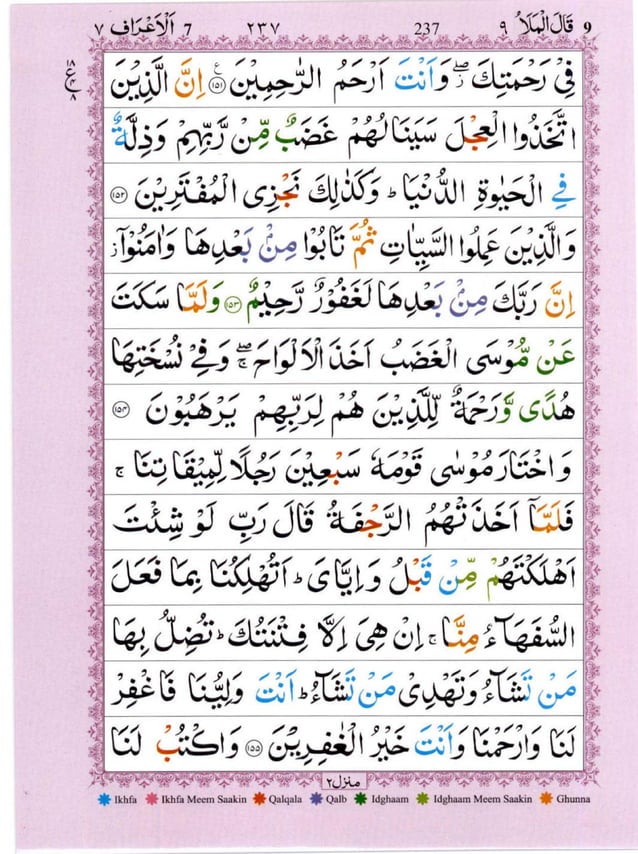 ٧ اَلْاَعْرَاف 7 ٢٣٧ 237 ٩ قَالَ الْمَلَاُ 9
فِيْ رَحْمَتِكَ ۖ وَاَنْتَ اَرْحَمُ الرّٰحِمِيْنَ ۝١٥١ اِنَّ الَّذِيْنَ
اتَّخَذُوا الْعِجْلَ سَيَنَالُهُمْ غَضَبٌ مِّنْ رَّبِّهِمْ وَذِلَّةٌ
فِي الْحَيٰوةِ الدُّنْيَا ؕ وَكَذٰلِكَ نَجْزِى الْمُفْتَرِيْنَ ۝١٥٢
وَالَّذِيْنَ عَمِلُوا السَّيِّاٰتِ ثُمَّ تَابُوْا مِنْۢ بَعْدِهَا وَاٰمَنُوْۤا ز
اِنَّ رَبَّكَ مِنْۢ بَعْدِهَا لَغَفُوْرٌ رَّحِيْمٌ ۝١٥٣ وَلَمَّا سَكَتَ
عَنْ مُّوْسَى الْغَضَبُ اَخَذَ الْاَلْوَاحَ ۖۚ وَفِيْ نُسْخَتِهَا
هُدًى وَّرَحْمَةٌ لِّلَّذِيْنَ هُمْ لِرَبِّهِمْ يَرْهَبُوْنَ ۝١٥٤
وَاخْتَارَ مُوْسٰى قَوْمَهٗ سَبْعِيْنَ رَجُلًا لِّمِيْقَاتِنَا ۚ
فَلَمَّاۤ اَخَذَتْهُمُ الرَّجْفَةُ قَالَ رَبِّ لَوْ شِئْتَ
اَهْلَكْتَهُمْ مِّنْ قَبْلُ وَاِيَّايَ ؕ اَتُهْلِكُنَا بِمَا فَعَلَ
السُّفَهَآءُ مِنَّا ۚ اِنْ هِىَ اِلَّا فِتْنَتُكَ ؕ تُضِلُّ بِهَا
مَنْ تَشَآءُ وَتَهْدِىْ مَنْ تَشَآءُ ؕ اَنْتَ وَلِيُّنَا فَاغْفِرْ
لَنَا وَارْحَمْنَا وَاَنْتَ خَيْرُ الْغٰفِرِيْنَ ۝١٥٥ وَاكْتُبْ لَنَا
منزل٢
Ikhfa Ikhfa Meem Saakin Qalqala Qalb Idghaam Idghaam Meem Saakin Ghunna